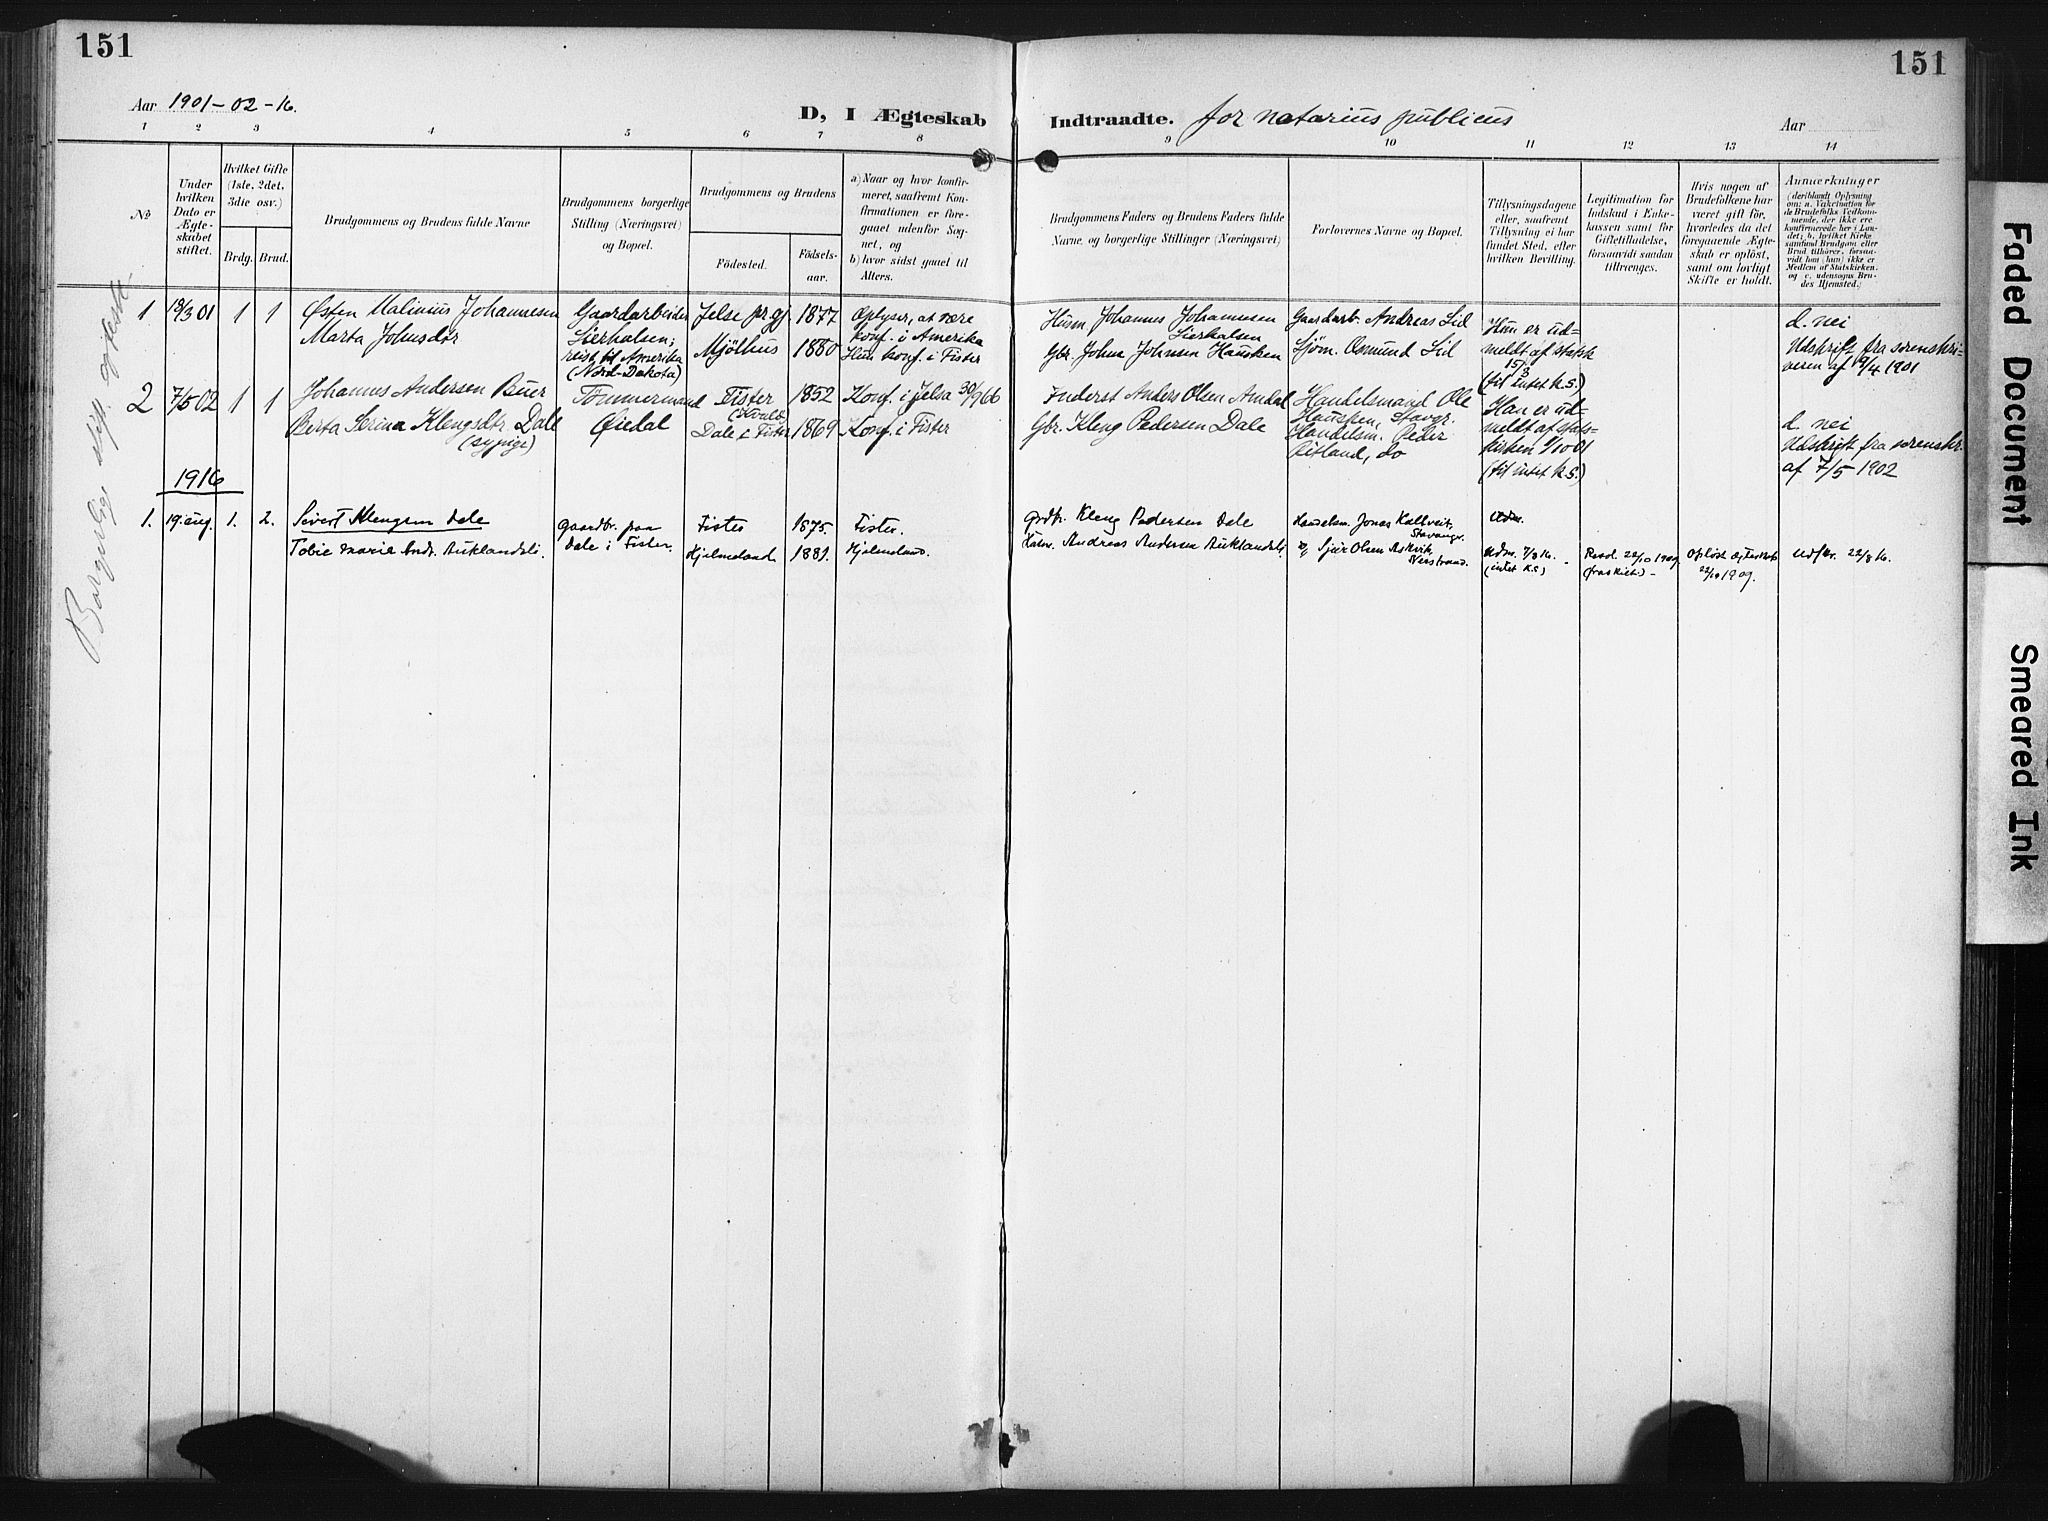 151
151
Aar 1901-02-16.
D, I Ægteskab Indtraadte. for notarius publicus
Aar
1 2 3 4 5 6 7 8 9 10 11 12 13 14
No
Under hvilken Dato er Ægteskabet stiftet.
Hvilket Gifte (1ste, 2det, 3die osv.)
Brdg. Brud.
Brudgommens og Brudens fulde Navne
Brudgommens borgerlige Stilling (Næringsvei) og Bopæl.
Brudgommens og Brudens
Fødested. Fødselsaar.
a) Naar og hvor konfirmeret, saafremt Konfirmationen er foregaaet udenfor Sognet, og
b) hvor sidst gaaet til Alters.
Brudgommens Faders og Brudens Faders fulde Navne, og borgerlige Stillinger (Næringsvei)
Forlovernes Navne og Bopæl.
Tillysningsdagene eller, saafremt Tillysning ei har fundet Sted, efter hvilken Bevilling.
Legitimation for Indskud i Enkekassen samt for Giftetilladelse, forsaavidt saadan tiltrænges.
Hvis nogen af Brudefolkene har været gift før, hvorledes da det foregaaende Ægteskab er opløst, samt om lovligt Skifte er holdt.
Anmærkninger
(deriblandt Oplysning om: a. Vakcination for de Brudefolks Vedkommende, der ikke ere konfirmerede her i Landet; b. hvilket Kirkesamfund Brudgom eller Brud tilhører, forsaavidt han (hun) ikke er Medlem af Statskirken, og c. udensogns Brudes Hjemsted.)
Borgerlige stift. egteskb.
1 18/3 01 1 1 Østen Malinius Johannesen
Marta Johnsdtr
Gaardarbeider
Lierhalsen;
reist til Amerika
(Nord-Dakota)
Jelse prgj. 1877
Mjølhus 1880
Oplyser, at være
konf. i Amerika
Hun konf. i Fister
Husm. Johannes Johannesen
Lierhalsen
Gbr. John Johnsen Hausken
Gaardarb. Andreas Lid
Sjøm. Osmund Lid
Hun er ud-
meldt af statsk.
15/3
(til intet k.s.)
d. nei
Udskrift fra sorenskri-
veren af 19/4 1901
2 7/5 02 1 1 Johannes Andersen Buer
Berta Serina Klengsdtr. Dale
(sypige)
Tømmermand
Øiedal
Fister
1852
Dale i Fister 1869
Konf. i Jelsa 30/9 66
Konf. i Fister
Inderst Anders Olsen Amdal
Gbr. Kleng Pedersen Dale
Handelsmand Ole
Hausken, Stavgr.
Handelsm. Peder
Ritland, do
Han er ud-
meldt af stats-
kirken 1/10 01
(til intet k.s.)
d. nei
Udskrift fra sorenskr.
af 7/5 1902
1916
1. 19. aug. 1. 2. Sivert Klengsen Dale
Tobie Marie Andr. Auklandsli.
gaardbr. paa
Dale i Fister.
Fister 1875. Fister.
Hjelmeland 1881. Hjelmeland.
Grdbr. Kleng Pedersen Dale
Andreas Andersen Auklandsli.
Handelsm. Jonas Kallveit,
Stavanger.
Sjur Olsen Askvik,
Nerstrand.
Udm.
Udm. 7/8 16.
(intet k.s.)
Resol. 22/10 1909.
(fraskilt) -
Opløst
22/10 1909.
Udskr. 22/8 16.
Faded Document
Smeared Ink